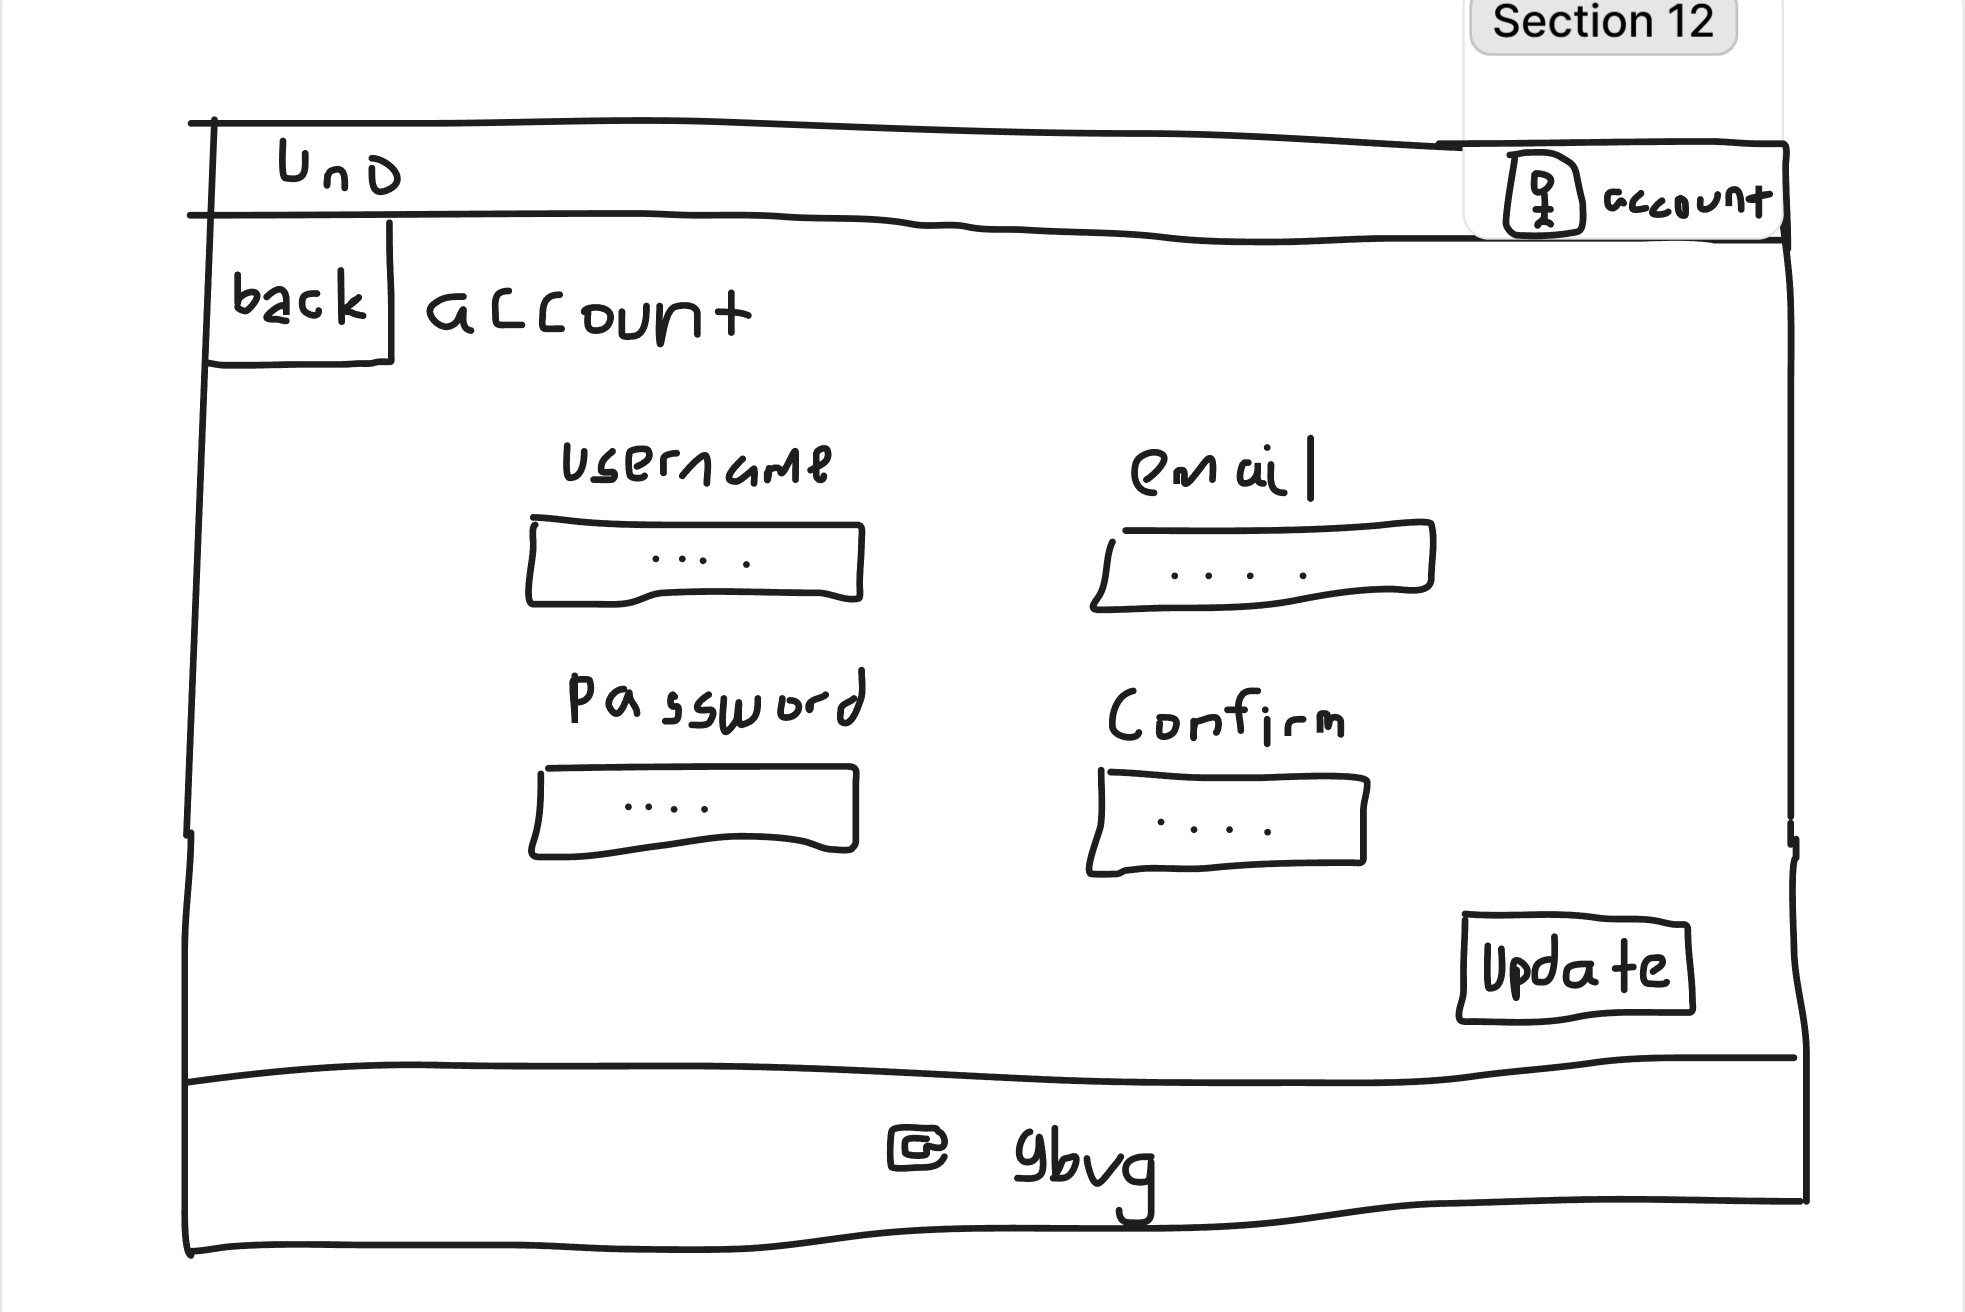 Section 12
UnD
account
back
account
username
email
....
....
Password
Confirm
....
....
Update
© gbvg